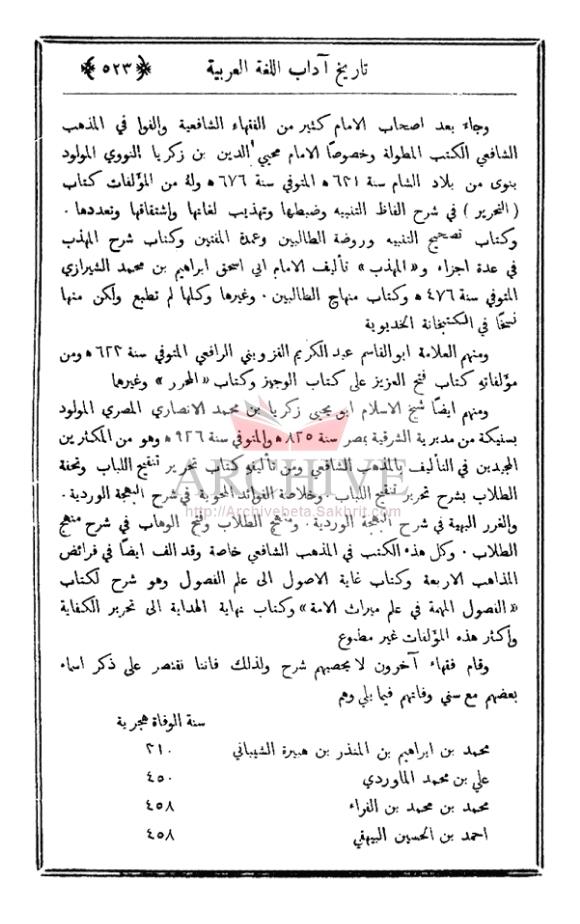 تاريخ آداب اللغة العربية ﴿ ٥٢٣ ﴾
وجاء بعد اصحاب الامام كثير من الفقهاء الشافعية والفوا في المذهب
الشافعي الكتب المطولة وخصوصًا الامام محيي الدين بن زكريا النووي المولود
بنوى من بلاد الشام سنة ٦٣١ ه المتوفي سنة ٦٧٦ ه وله من المؤلفات كتاب
( التحرير ) في شرح الفاظ التنبيه وضبطها وتهذيب لغاتها واشتقاقها وتعددها .
وكتاب تصحيح التنبيه وروضة الطالبين وعمدة المفتين وكتاب شرح المهذب
في عدة اجزاء و«المهذب» تأليف الامام ابي اسحق ابراهيم بن محمد الشيرازي
المتوفي سنة ٤٧٦ ه وكتاب منهاج الطالبين . وغيرها وكلها لم تطبع ولكن منها
نسخًا في الكتبخانة الخديوية
ومنهم العلامة ابوالقاسم عبد الكريم القزويني الرافعي المتوفي سنة ٦٢٣ ه ومن
مؤلفاته كتاب فتح العزيز على كتاب الوجيز وكتاب «المحرر» وغيرها
ومنهم ايضًا شيخ الاسلام ابو يحيى زكريا بن محمد الانصاري المصري المولود
بسنيكة من مديرية الشرقية بمصر سنة ٨٢٥ ه والمتوفي سنة ٩٢٦ ه وهو من المكثرين
المجيدين في التأليف بالمذهب الشافعي ومن تأليفه كتاب تحرير تنقيح اللباب وتحفة
ARCHIVE
الطلاب بشرح تحرير تنقيح اللباب . وخلاصة الفوائد المحوية في شرح البهجة الوردية .
http://Archivebeta.Sakhrit.com
والغرر البهية في شرح البهجة الوردية . ومنهج الطلاب وفتح الوهاب في شرح منهج
الطلاب . وكل هذه الكتب في المذهب الشافعي خاصة وقد الف ايضًا في فرائض
المذاهب الاربعة وكتاب غاية الاصول الى علم الفصول وهو شرح لكتاب
«الفصول المهمة في علم ميراث الامة» وكتاب نهاية الهداية الى تحرير الكفاية
واكثر هذه المؤلفات غير مطبوع
وقام فقهاء آخرون لا يحصيهم شرح ولذلك فاننا نقتصر على ذكر اسماء
بعضهم مع سني وفاتهم فيما يلي وهم
سنة الوفاة هجرية
محمد بن ابراهيم بن المنذر بن هبيرة الشيباني ٣١٠
علي بن محمد الماوردي ٤٥٠
محمد بن محمد بن الفراء ٤٥٨
احمد بن الحسين البيهقي ٤٥٨